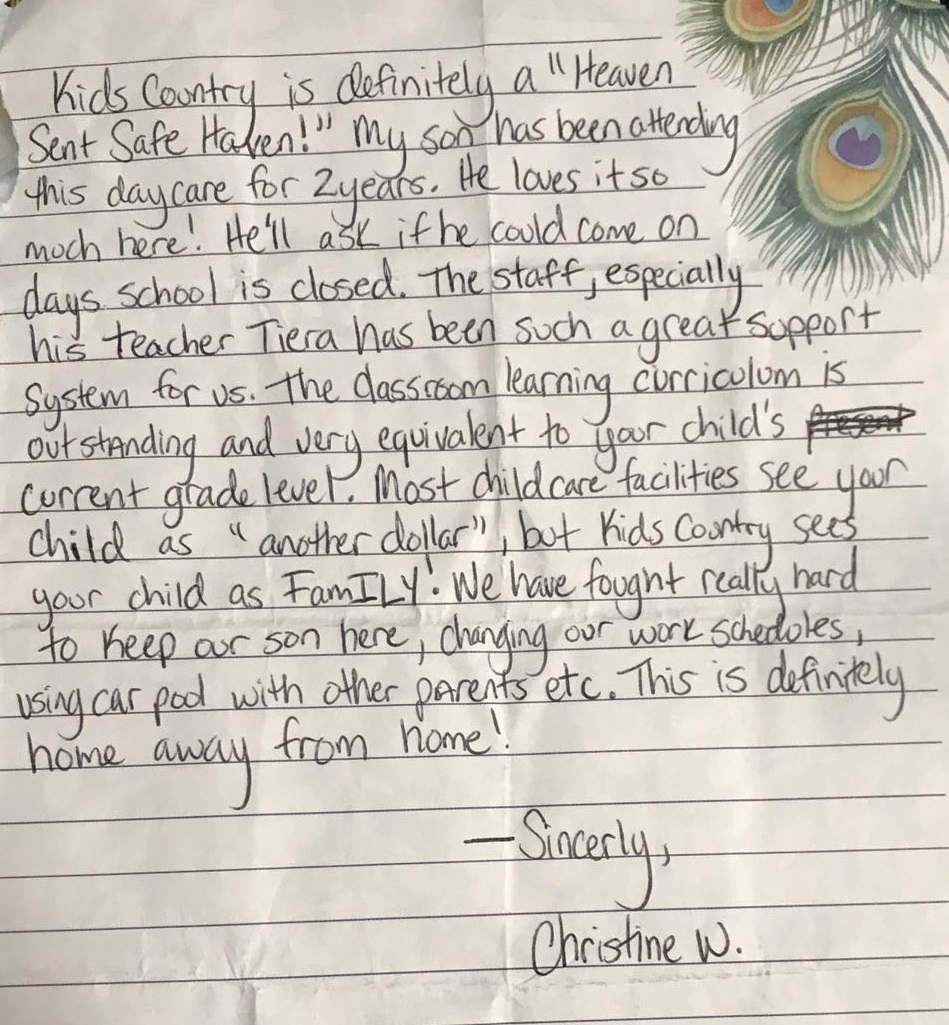 Kids Country is definitely a "Heaven
Sent Safe Haven!" My son has been attending
this daycare for 2 years. He loves it so
much here! He'll ask if he could come on
days school is closed. The staff, especially
his teacher Tiera has been such a great support
system for us. The classroom learning curriculum is
outstanding and very equivalent to your child's present
current grade level. Most childcare facilities see your
child as "another dollar", but Kids Country sees
your child as FamILY! We have fought really hard
to keep our son here, changing our work schedules,
using car pool with other parents etc. This is definitely
home away from home!
—Sincerly,
Christine W.